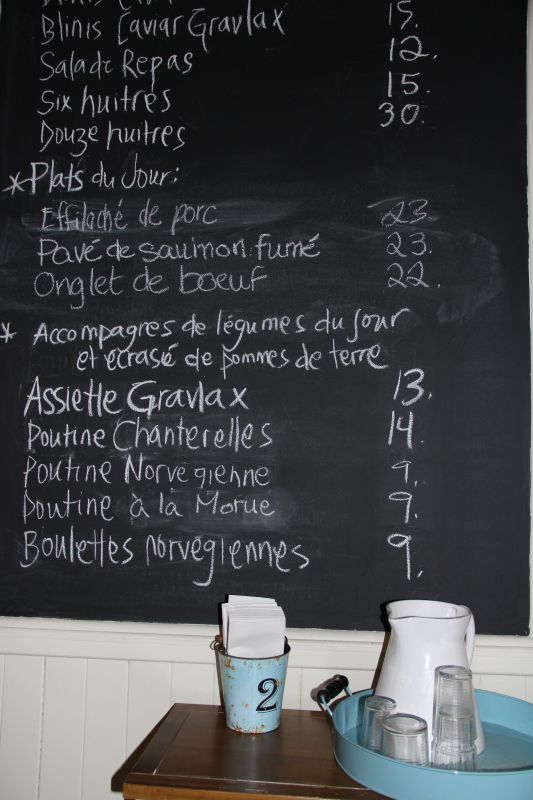 Blinis
Blinis Caviar Gravlax 15.
Salade Repas 12.
Six huitres 15.
Douze huitres 30.
*Plats du Jour:
Effiloché de porc 23.
Pavé de saumon fumé 23.
Onglet de boeuf 22.
* Accompagnes de légumes du jour
et écrasé de pommes de terre
Assiette Gravlax 13.
Poutine Chanterelles 14.
Poutine Norvégienne 9.
Poutine à la Morue 9.
Boulettes norvégiennes 9.
2